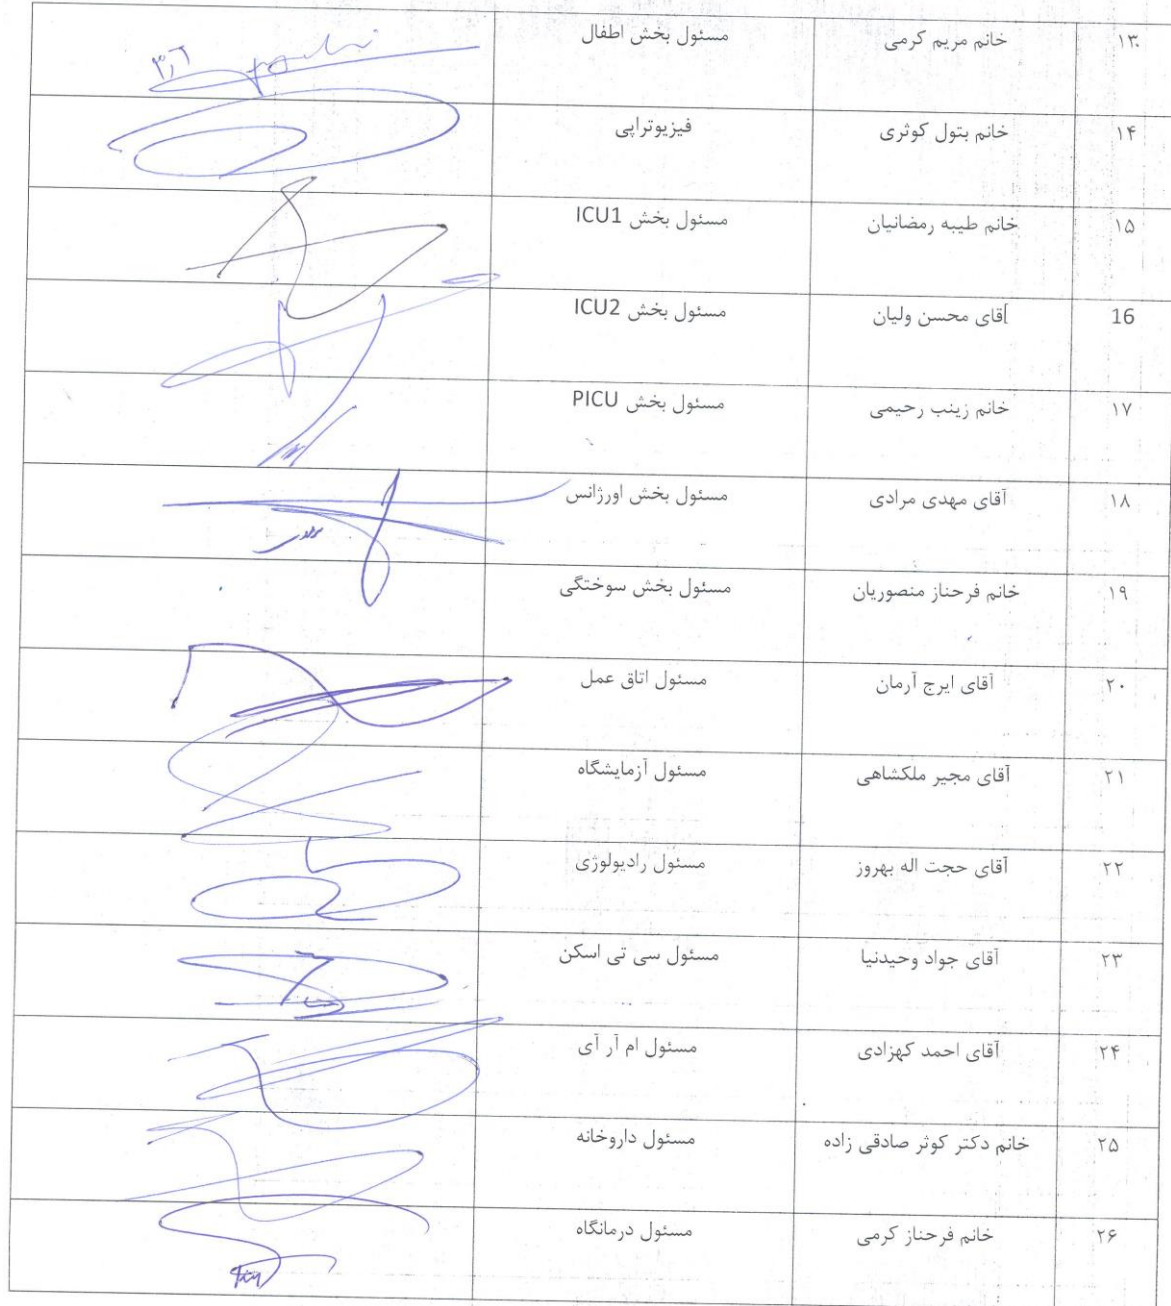 ۱۳ خانم مریم کرمی مسئول بخش اطفال
۱۴ خانم بتول کوثری فیزیوتراپی
۱۵ خانم طیبه رمضانیان مسئول بخش ICU1
16 آقای محسن ولیان مسئول بخش ICU2
۱۷ خانم زینب رحیمی مسئول بخش PICU
۱۸ آقای مهدی مرادی مسئول بخش اورژانس
۱۹ خانم فرحناز منصوریان مسئول بخش سوختگی
۲۰ آقای ایرج آرمان مسئول اتاق عمل
۲۱ آقای مجیر ملکشاهی مسئول آزمایشگاه
۲۲ آقای حجت اله بهروز مسئول رادیولوژی
۲۳ آقای جواد وحیدنیا مسئول سی تی اسکن
۲۴ آقای احمد کهزادی مسئول ام آر آی
۲۵ خانم دکتر کوثر صادقی زاده مسئول داروخانه
۲۶ خانم فرحناز کرمی مسئول درمانگاه